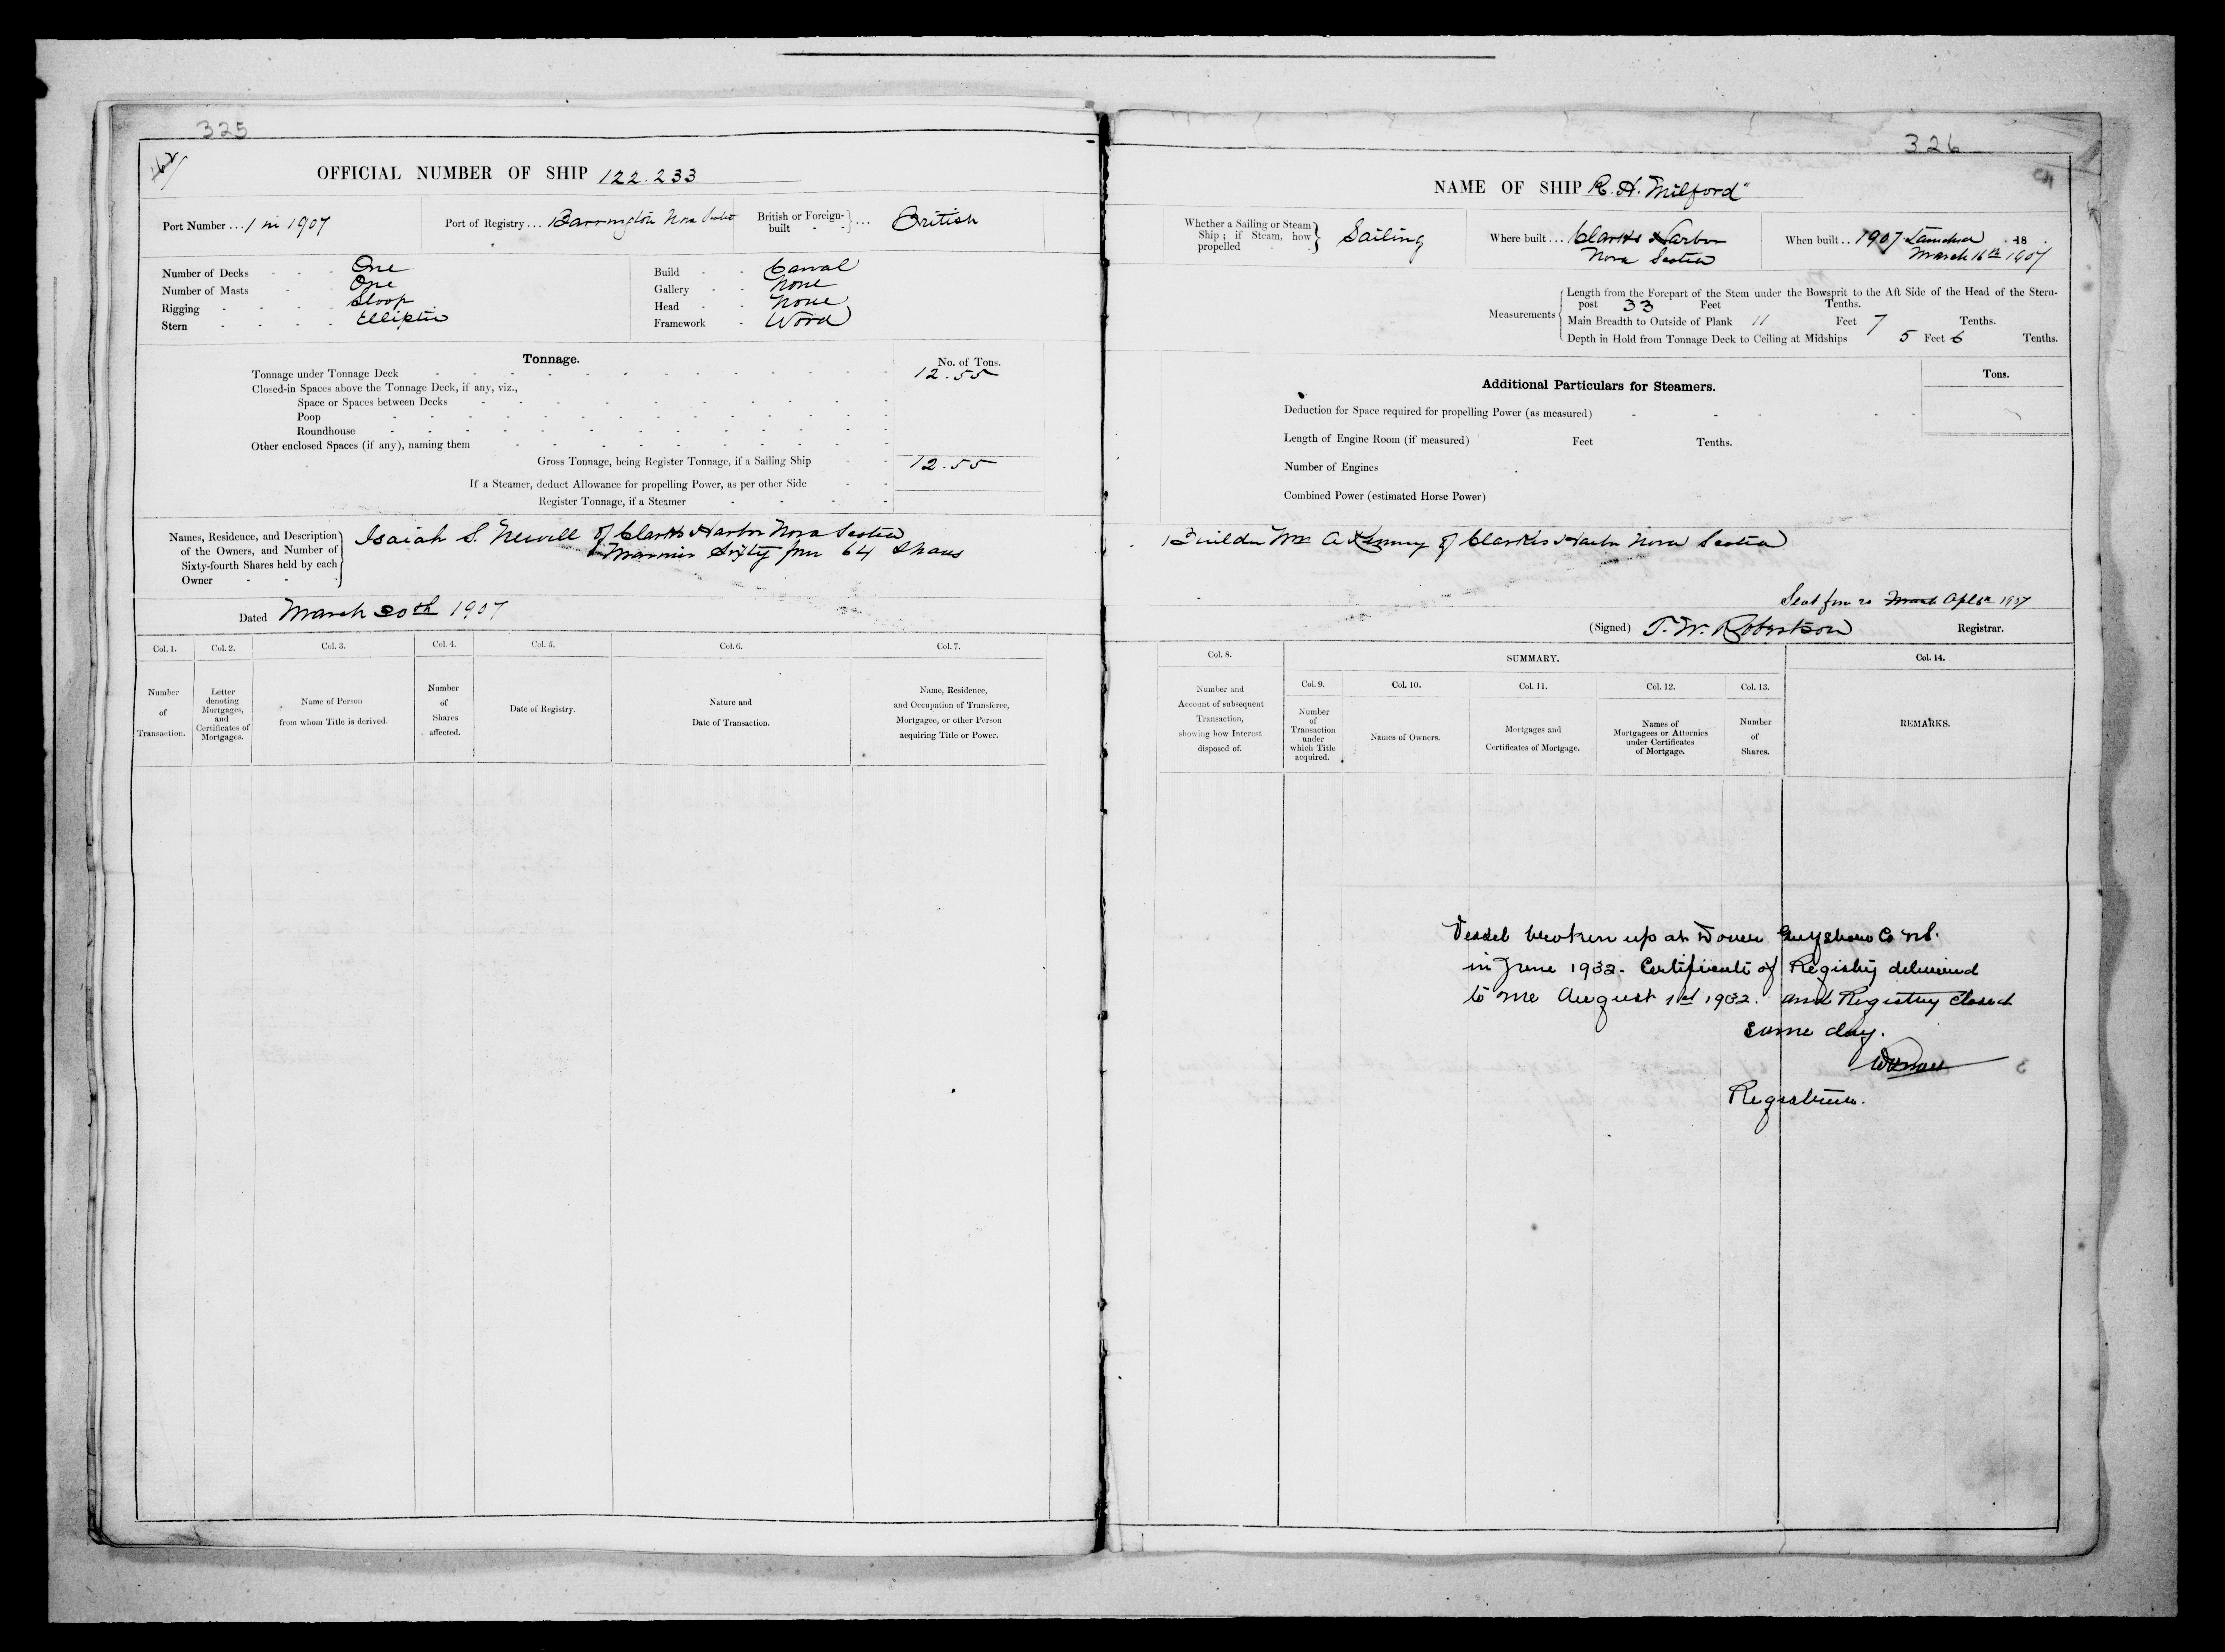 325
OFFICIAL NUMBER OF SHIP 122.233
Port Number ... 1 in 1907 Port of Registry ... Barrington Nova Scotia British or Foreign-built ... British
Number of Decks One
Number of Masts One
Rigging Sloop
Stern Elliptic
Build Carval
Gallery None
Head None
Framework Wood
Tonnage. No. of Tons.
Tonnage under Tonnage Deck 12.55
Closed-in Spaces above the Tonnage Deck, if any, viz.,
Space or Spaces between Decks
Poop
Roundhouse
Other enclosed Spaces (if any), naming them
Gross Tonnage, being Register Tonnage, if a Sailing Ship 12.55
If a Steamer, deduct Allowance for propelling Power, as per other Side
Register Tonnage, if a Steamer
Names, Residence, and Description
of the Owners, and Number of
Sixty-fourth Shares held by each
Owner
Isaiah S. Newell of Clarks Harbor Nova Scotia
Mariner Sixty four 64 Shares
Dated March 20th 1907
Col. 1. Col. 2. Col. 3. Col. 4. Col. 5. Col. 6. Col. 7.
Number of Transaction.
Letter denoting Mortgages, and Certificates of Mortgages.
Name of Person from whom Title is derived.
Number of Shares affected.
Date of Registry.
Nature and Date of Transaction.
Name, Residence, and Occupation of Transferee, Mortgagee, or other Person acquiring Title or Power.
326
NAME OF SHIP R. H. Milford"
Whether a Sailing or Steam Ship; if Steam, how propelled Sailing
Where built ... Clarks Harbor
Nova Scotia
When built .. 1907 Launched 18
March 16th 1907
Measurements
Length from the Forepart of the Stem under the Bowsprit to the Aft Side of the Head of the Stern-
post 33 Feet Tenths.
Main Breadth to Outside of Plank 11 Feet 7 Tenths.
Depth in Hold from Tonnage Deck to Ceiling at Midships 5 Feet 6 Tenths.
Additional Particulars for Steamers. Tons.
Deduction for Space required for propelling Power (as measured)
Length of Engine Room (if measured) Feet Tenths.
Number of Engines
Combined Power (estimated Horse Power)
Builder Wm A Kenney of Clarks Harbor Nova Scotia
March Apl 6th 1907
(Signed) T. W. Robertson Registrar.
Col. 8. SUMMARY. Col. 14.
Col. 9. Col. 10. Col. 11. Col. 12. Col. 13.
Number and Account of subsequent Transaction, showing how Interest disposed of.
Number of Transaction under which Title acquired.
Names of Owners.
Mortgages and Certificates of Mortgage.
Names of Mortgagees or Attornies under Certificates of Mortgage.
Number of Shares.
REMARKS.
Vessel broken up at Dover Guysboro Co N.S.
in June 1932. Certificate of Registry delivered
to me August 1st 1932. and Registry closed
same day.
Registrar.